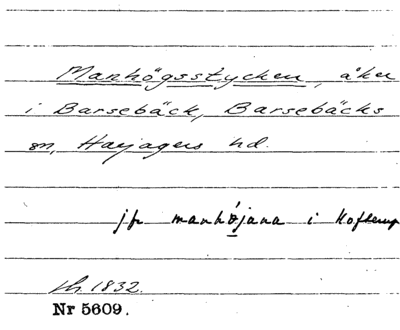 Manhögsstycken, åker
i Barsebäck, Barsebäcks
sn, Harjagers hd.
jfr manhøjana i Hofterup
lh. 1832.
Nr 5609.